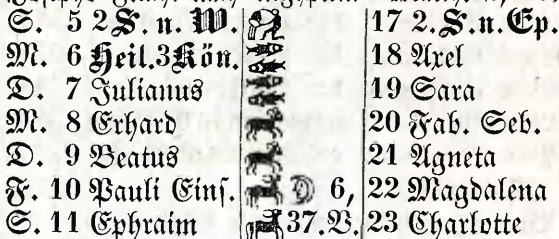 S. 5 2 S. n. W. 17 2. S. n. Ep.
M. 6 Heil. 3 Kön. 18 Axel
D. 7 Julianus 19 Sara
M. 8 Erhard 20 Fab. Seb.
D. 9 Beatus 21 Agneta
F. 10 Pauli Eins. ☽ 6, 22 Magdalena
S. 11 Ephraim 37. V. 23 Charlotte